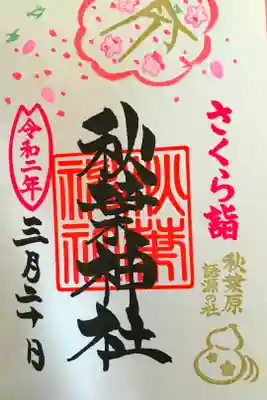 さくら詣
秋葉原
語源の社
秋葉神社
秋葉
神社
令和二年
三月二十日